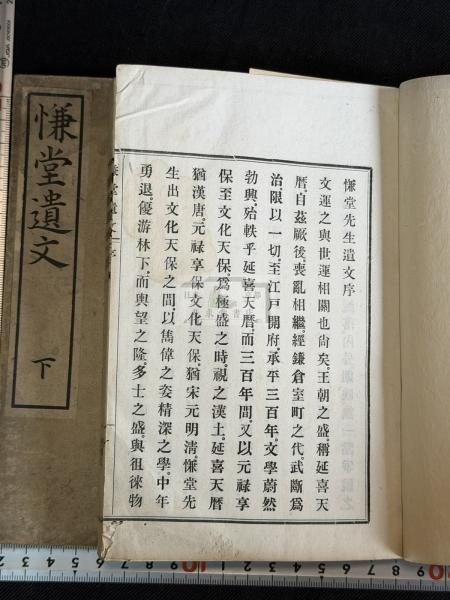 慊堂遺文
下
慊堂先生遺文序
文運之與世運相關也尙矣。王朝之盛。稱延喜天
曆。自茲厥後。喪亂相繼。經鎌倉室町之代。武斷爲
治。限以一切。至江戶開府。承平三百年。文學蔚然
勃興。殆軼乎延喜天曆。而三百年間。又以元祿享
保至文化天保。爲極盛之時。視之漢土。延喜天曆
猶漢唐。元祿享保文化天保。猶宋元明淸。慊堂先
生出文化天保之間。以雋偉之姿精深之學。中年
勇退。優游林下。而輿望之隆。多士之盛。與徂徠物